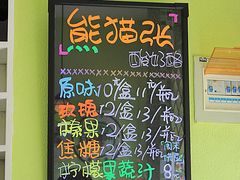 熊猫张
酸奶酪
原味10/盒 11/瓶
玫瑰12/盒 13/瓶
芒果12/盒 13/瓶
焦糖12/盒 13/瓶
柠檬果蔬汁